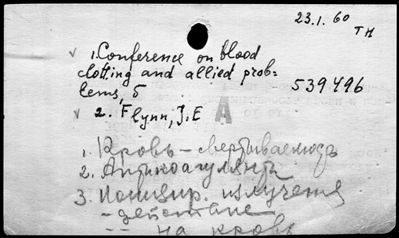 23.1.60
TH
√ 1. Conference on blood
clotting and allied prob-
lems, 5
539496
√ 2. Flynn, J.E
A
1. Кровь – свертываемость
2. Антикоагулянты
3. Ионизир. излучения
– действие
–– на кровь